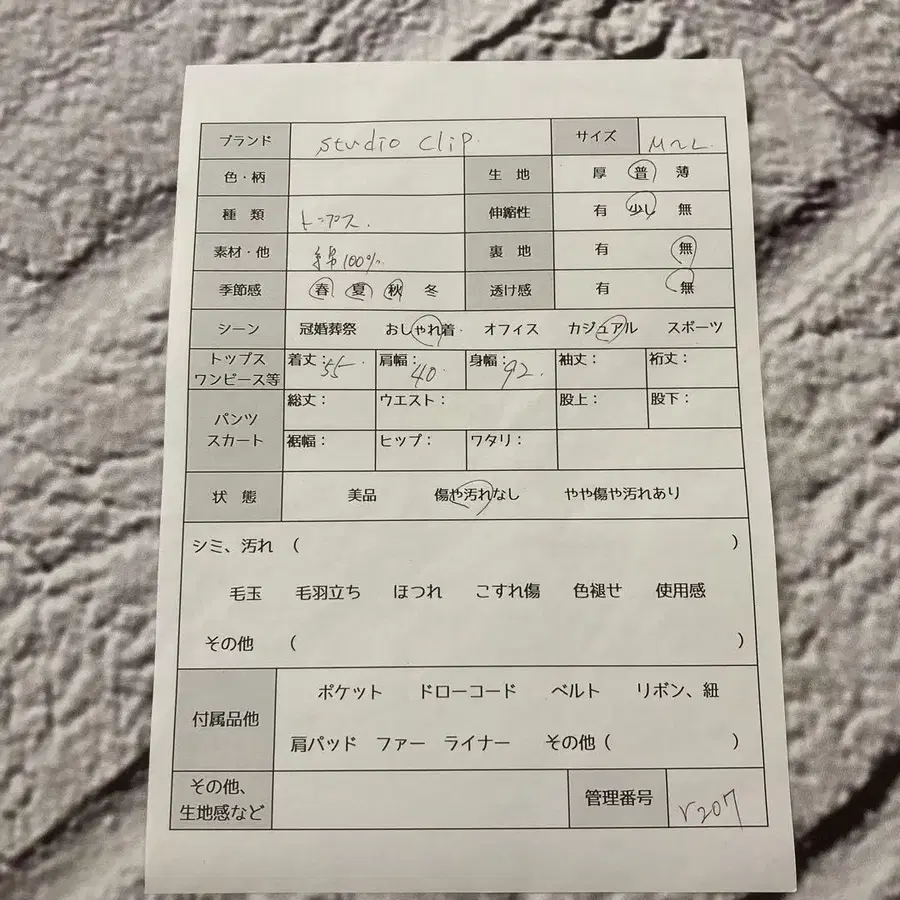 ブランド studio clip. サイズ M~L
色・柄 生 地 厚 普 薄
種 類 トップス. 伸縮性 有 少し 無
素材・他 綿100%. 裏 地 有 無
季節感 春 夏 秋 冬 透け感 有 無
シーン 冠婚葬祭 おしゃれ着 オフィス カジュアル スポーツ
トップス
ワンピース等 着丈:55 肩幅:40. 身幅:92. 袖丈: 裄丈:
パンツ
スカート 総丈: ウエスト: 股上: 股下:
裾幅: ヒップ: ワタリ:
状 態 美品 傷や汚れなし やや傷や汚れあり
シミ、汚れ ( )
毛玉 毛羽立ち ほつれ こすれ傷 色褪せ 使用感
その他 ( )
付属品他 ポケット ドローコード ベルト リボン、紐
肩パッド ファー ライナー その他 ( )
その他、
生地感など 管理番号 r207